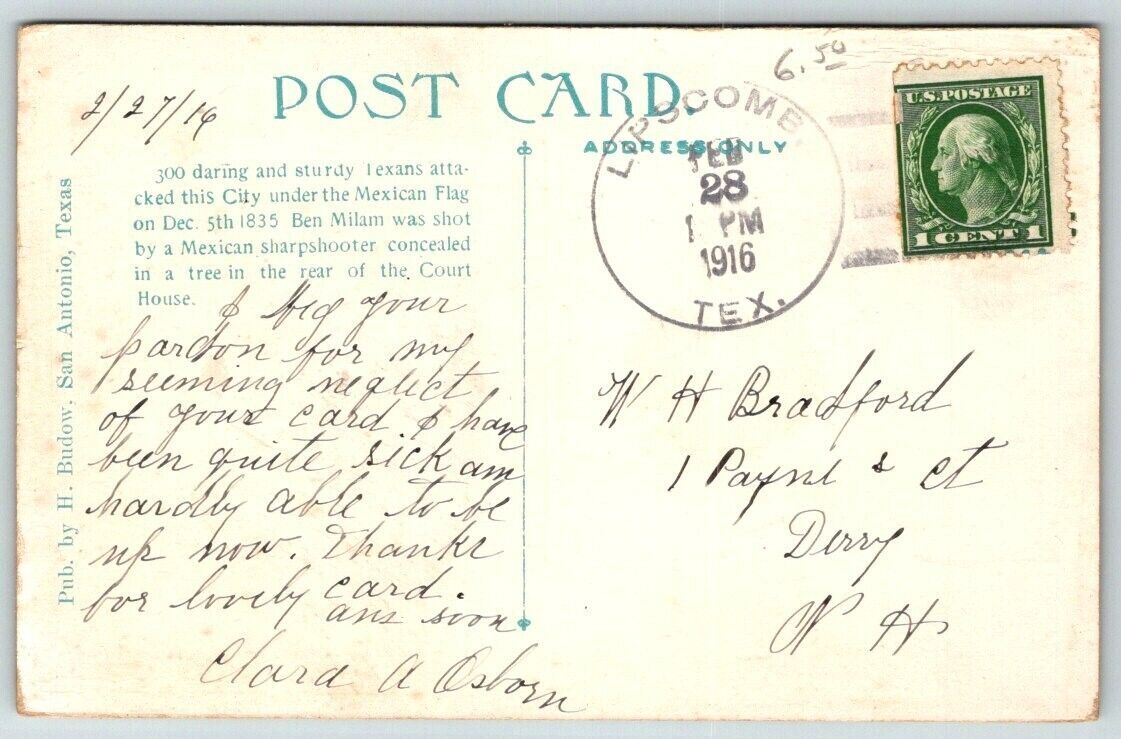 2/27/16
6.50
POST CARD.
ADDRESS ONLY
LIPSCOMB
FEB
28
1 PM
1916
TEX.
U.S. POSTAGE
1 CENT 1
300 daring and sturdy Texans atta-
cked this City under the Mexican Flag
on Dec. 5th 1835 Ben Milam was shot
by a Mexican sharpshooter concealed
in a tree in the rear of the Court
House.
Pub. by H. Budow, San Antonio, Texas
I beg your
pardon for my
seeming neglect
of your card I have
been quite sick am
hardly able to be
up now. Thanks
for lovely card.
ans soon
Clara A Osborn
W H Bradford
1 Payne s ct
Derry
N H